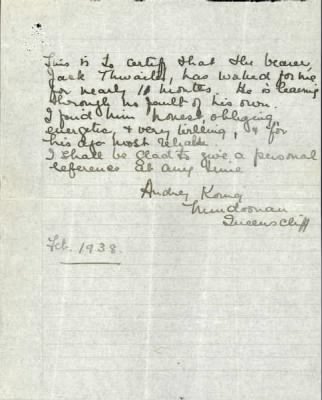 This is to certify that the bearer,
Jack Thwaites, has worked for me
for nearly 10 months. He is leaving
through no fault of his own.
I found him honest, obliging,
energetic, & very willing, & for
his age most reliable
I shall be glad to give a personal
reference at any time
Audrey
Queenscliff
Feb. 1938.